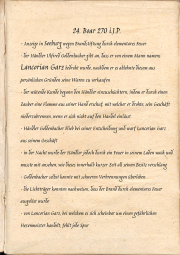 24. Boar 270 I.J.P.
- Anzeige in Seeburg wegen Brandstiftung durch elementares Feuer
- Der Händler Ulfried Gallenbacher gibt an, dass er von einem Mann namens
Lancorian Garz bedroht wurde, nachdem er es ablehnte diesem aus
persönlichen Gründen seine Waren zu verkaufen
- Der wütende Kunde begann den Händler einzuschüchtern, indem er durch einen
Zauber eine Flamme aus seiner Hand erschuf, mit welcher er drohte, sein Geschäft
niederzubrennen, wenn er sich nicht auf den Handel einlässt
- Händler Gallenbacher blieb bei seiner Entscheidung und warf Lancorian Garz aus
seinem Geschäft
- In der Nacht wurde der Händler jedoch durch ein Feuer in seinem Laden wach und
musste mit ansehen, wie dieses innerhalb kurzer Zeit all seinen Besitz verschlang
- Gallenbacher selbst konnte mit schweren Verbrennungen überleben
- Die Lichtträger konnten nachweisen, dass der Brand durch elementares Feuer
ausgelöst wurde
- von Lancorian Garz, bei welchem es sich scheinbar um einen gefährlichen
Hexenmeister handelt, fehlt jede Spur